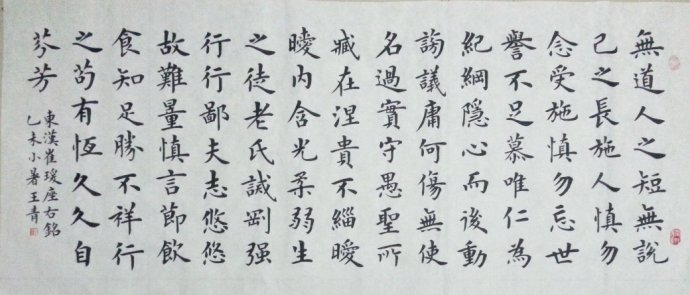 無道人之短無說
己之長施人慎勿
念受施慎勿忘世
譽不足慕唯仁為
紀綱隱心而後動
謗議庸何傷無使
名過實守愚聖所
臧在涅貴不緇曖
曖內含光柔弱生
之徒老氏誡剛强
行行鄙夫志悠悠
故難量慎言節飲
食知足勝不祥行
之苟有恆久久自
芬芳
東漢崔瑗座右銘
乙未小暑王青